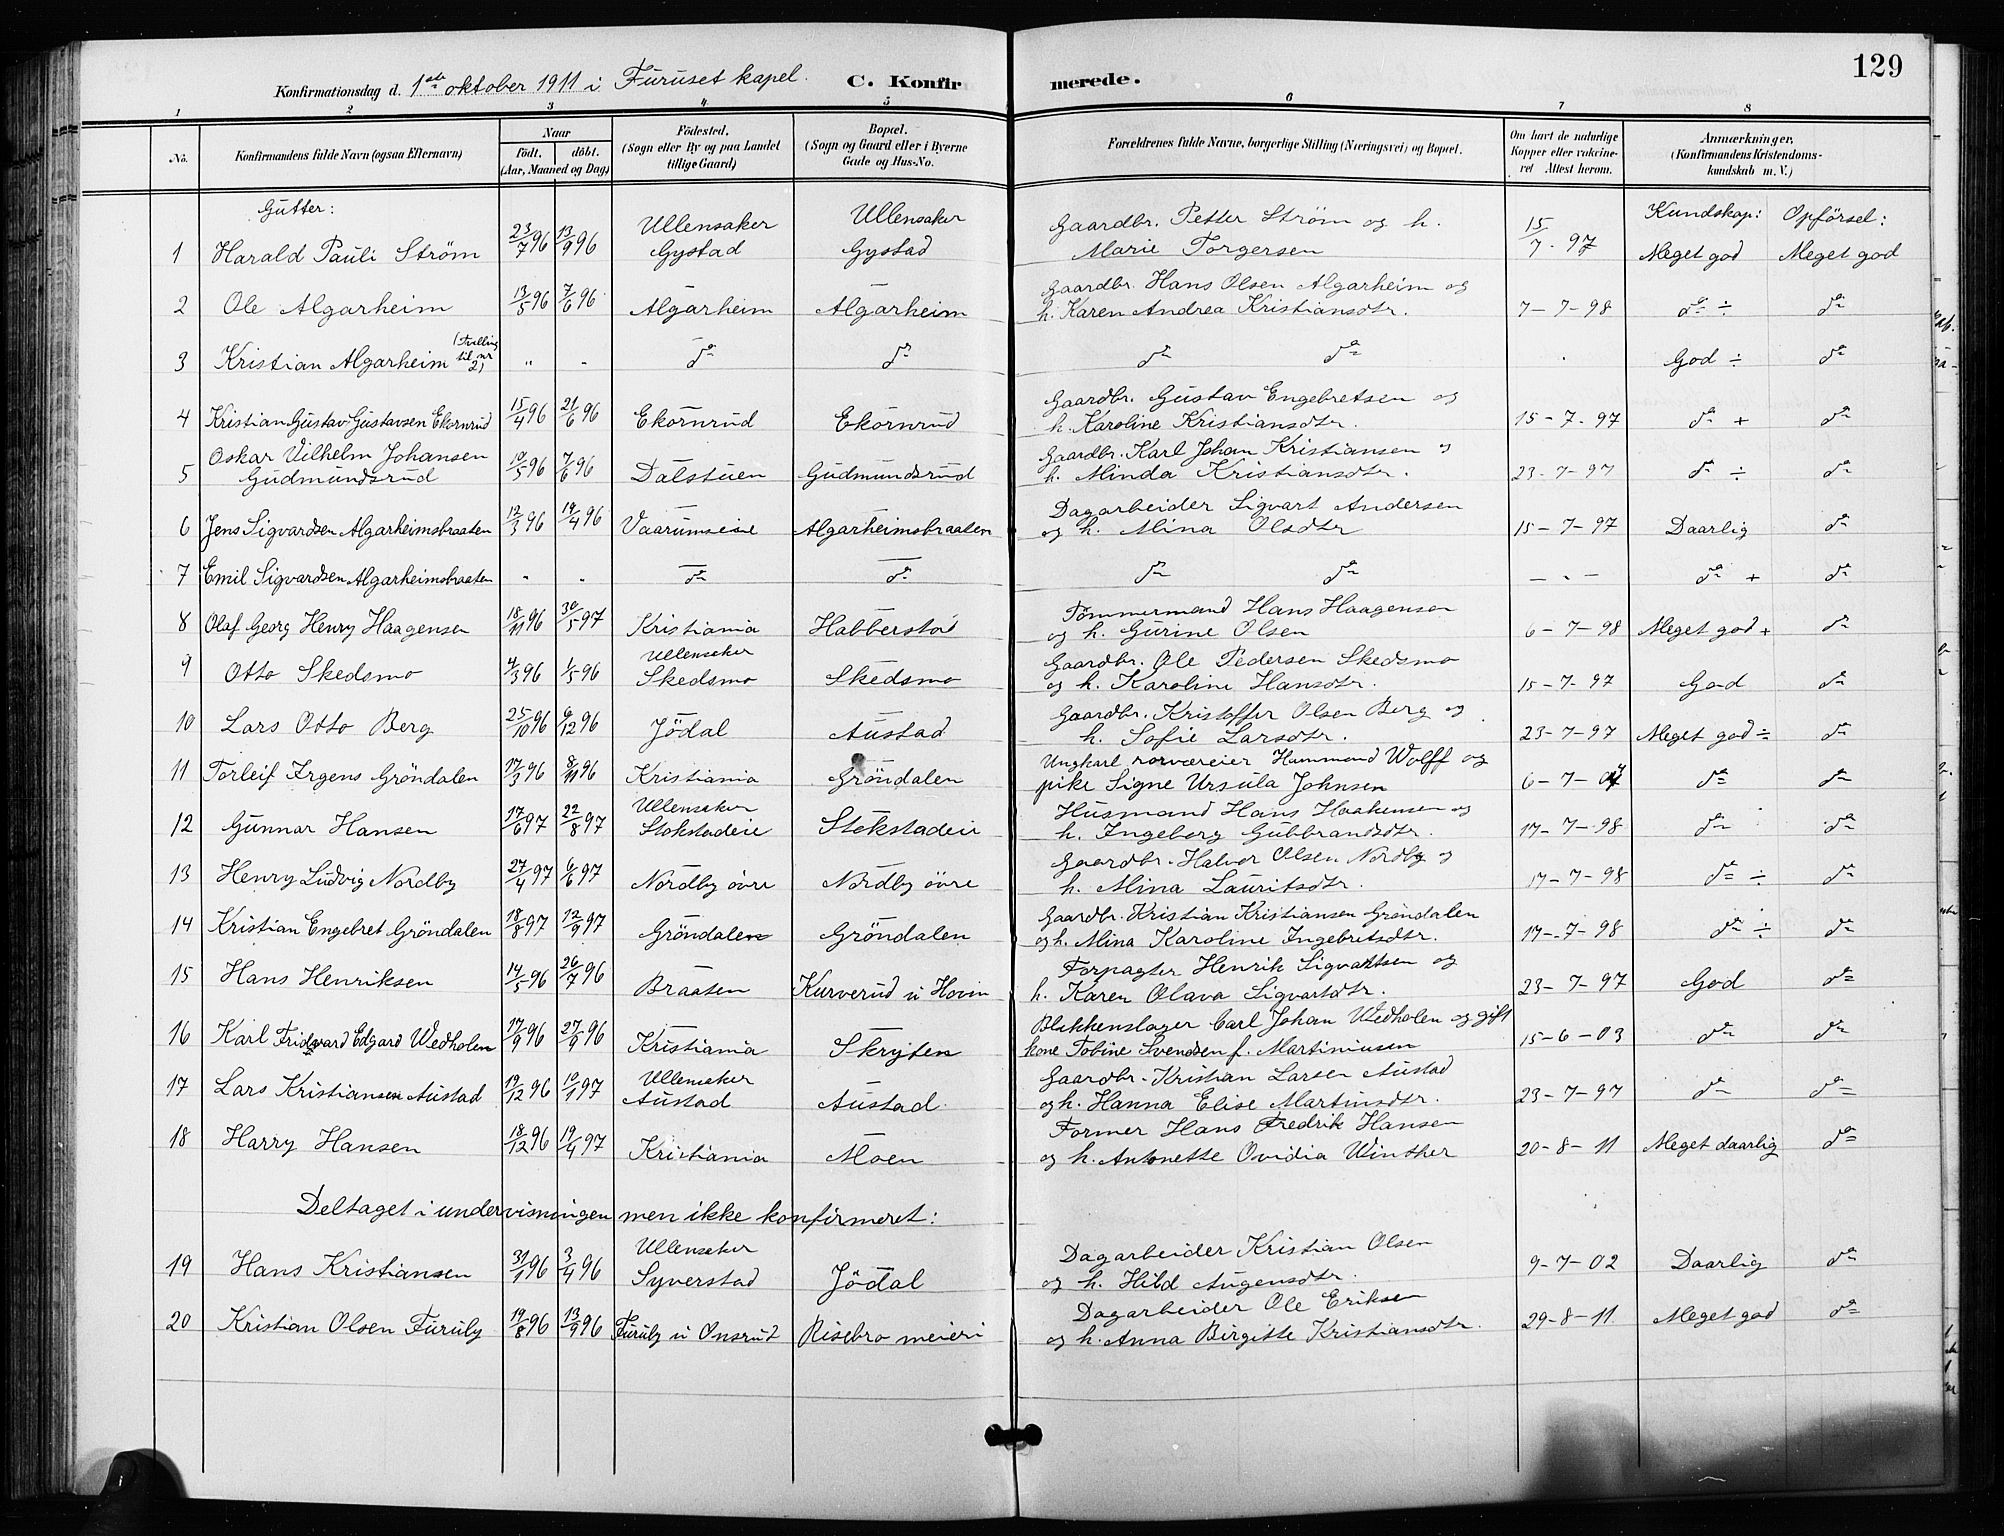 129
Konfirmationsdag d. 1ste oktober 1911 i Furuset kapel. C. Konfirmerede.
1 2 3 4 5 6 7 8
No. Konfirmandens fulde Navn (ogsaa Efternavn) Naar født. døbt. (Aar, Maaned og Dag) Fødested. (Sogn eller By og paa Landet tillige Gaard) Bopæl. (Sogn og Gaard eller i Byerne Gade og Hus-No. Forældrenes fulde Navne, borgerlige Stilling (Næringsvei) og Bopæl. Om havt de naturlige Kopper eller vakcineret Attest herom. Anmærkninger. (Konfirmandens Kristendomskundskab m. V.)
Gutter: Kundskap: Opførsel:
1 Harald Pauli Strøm 23/7 96 13/9 96 Ullensaker Gystad Ullensaker Gystad Gaardbr. Petter Strøm og h. Marie Torgersen 15/7-97 Meget god Meget god
2 Ole Algarheim 13/5 96 7/6 96 Algarheim Algarheim Gaardbr. Hans Olsen Algarheim og h. Karen Andrea Kristiansdtr. 7-7-98 do ÷ do
3 Kristian Algarheim (Tvilling til nr 2) " - do do do do God ÷ do
4 Kristian Gustav Gustavsen Ekornrud 15/4 96 21/6 96 Ekornrud Ekornrud Gaardbr. Gustav Engebretsen og h. Karoline Kristiansdtr. 15-7-97 do + do
5 Oskar Vilhelm Johansen Gudmundsrud 10/5 96 7/6 96 Dalstuen Gudmundsrud Gaardbr. Karl Johan Kristiansen og h. Minda Kristiansdtr. 23-7-97 do ÷ do
6 Jens Sigvardsen Algarheimsbraaten 12/3 96 19/4 96 Vaarumseie Algarheimsbraaten Dagarbeider Sigvart Andersen og h. Mina Olsdtr 15-7-97 Daarlig do
7 Emil Sigvardsen Algarheimsbraaten - - do do do do - - - do + do
8 Olaf Georg Henry Haagensen 18/11 96 30/5 97 Kristiania Habberstad Tømmermand Hans Haagensen og h. Gurine Olsen 6-7-98 Meget god + do
9 Otto Skedsmo 4/3 96 1/5 96 Ullensaker Skedsmo Skedsmo Gaardbr. Ole Pedersen Skedsmo og h. Karoline Hansdtr. 15-7-97 God do
10 Lars Otto Berg 25/10 96 6/12 96 Jödal Austad Gaardbr. Kristoffer Olsen Berg og h. Sofie Larsdtr. 23-7-97 Meget god ÷ do
11 Torleif Irgens Gröndalen 17/3 96 8/11 96 Kristiania Gröndalen Ungkarl rorværeier Hammond Wolff og pike Signe Ursula Johnsen 6-7-07 do do
12 Gunnar Hansen 17/6 97 22/8 97 Ullensaker Stokstadeie Stokstadeie Husmand Hans Haakensen og h. Ingeborg Gubbrandsdtr. 17-7-98 do do
13 Henry Ludvig Nordby 27/4 97 6/6 97 Nordby övre Nordby övre Gaardbr. Halvor Olsen Nordby og h. Mina Lauritsdtr. 17-7-98 do ÷ do
14 Kristian Engebret Gröndalen 18/8 97 12/9 97 Gröndalen Gröndalen Gaardbr. Kristian Kristiansen Gröndalen og h. Mina Karoline Ingebretsdtr. 17-7-98 do ÷ do
15 Hans Henriksen 14/5 96 26/7 96 Braaten Kurverud u Hovin Forpagter Henrik Sigvartsen og h. Karen Olava Sigvartsdtr. 23-7-97 God do
16 Karl Fridvard Edgard Wedholen 17/9 96 27/9 96 Kristiania Skryten Blikkenslager Carl Johan Wedholen og gift kone Tobine Svendsen f. Martiniusen 15-6-03 do do
17 Lars Kristiansen Austad 19/12 96 10/1 97 Ullensaker Austad Austad Gaardbr. Kristian Larsen Austad og h. Hanna Elise Martinsdtr. 23-7-97 do do
18 Harry Hansen 18/12 96 19/4 97 Kristiania Moen Former Hans Fredrik Hansen og h. Antonette Ovidia Winther 20-8-11 Meget daarlig do
Deltaget i undervisningen men ikke konfirmeret:
19 Hans Kristiansen 31/1 96 3/4 96 Ullensaker Syverstad Jödal Dagarbeider Kristian Olsen og h. Hild Augensdtr. 9-7-02 Daarlig do
20 Kristian Olsen Furuly 19/8 96 13/9 96 Furuly u Onsrud Risebro meieri Dagarbeider Ole Eriksen og h. Anna Birgitte Kristiansdtr. 29-8-11 Meget god do